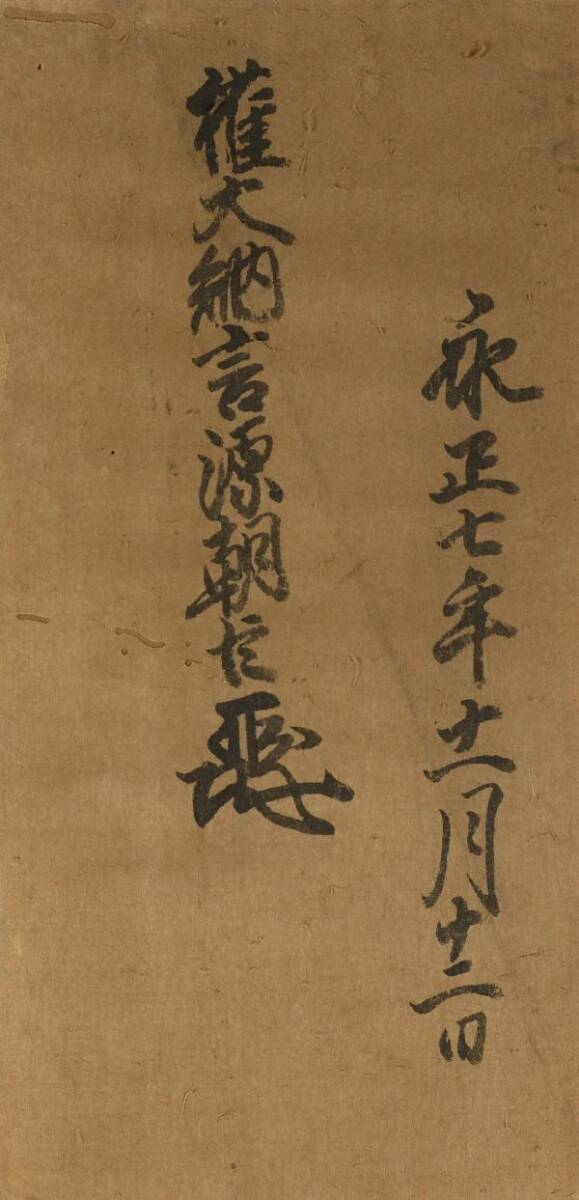 永正七年十一月十二日
権大納言源朝臣